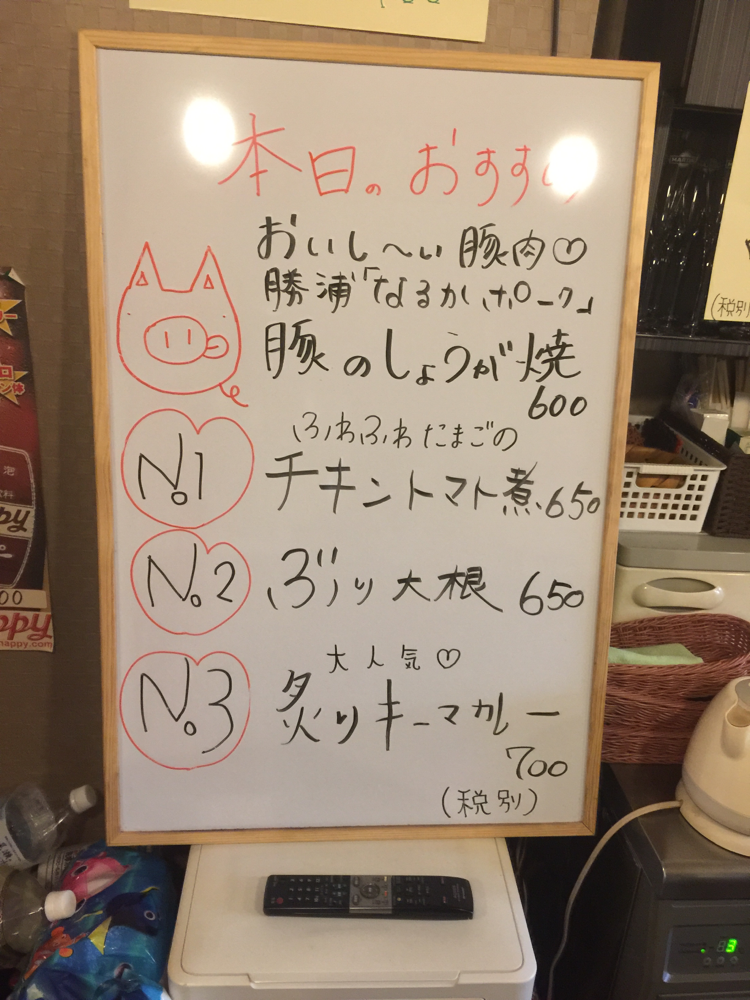 本日のおすすめ
おいし〜い豚肉♡
勝浦「なるかポーク」
豚のしょうが焼
600
ふわふわたまごの
No.1 チキントマト煮 650
No.2 ぶり大根 650
大人気♡
No.3 炙りキーマカレー
700
(税別)
(税別
00
ppy
happy.com
3